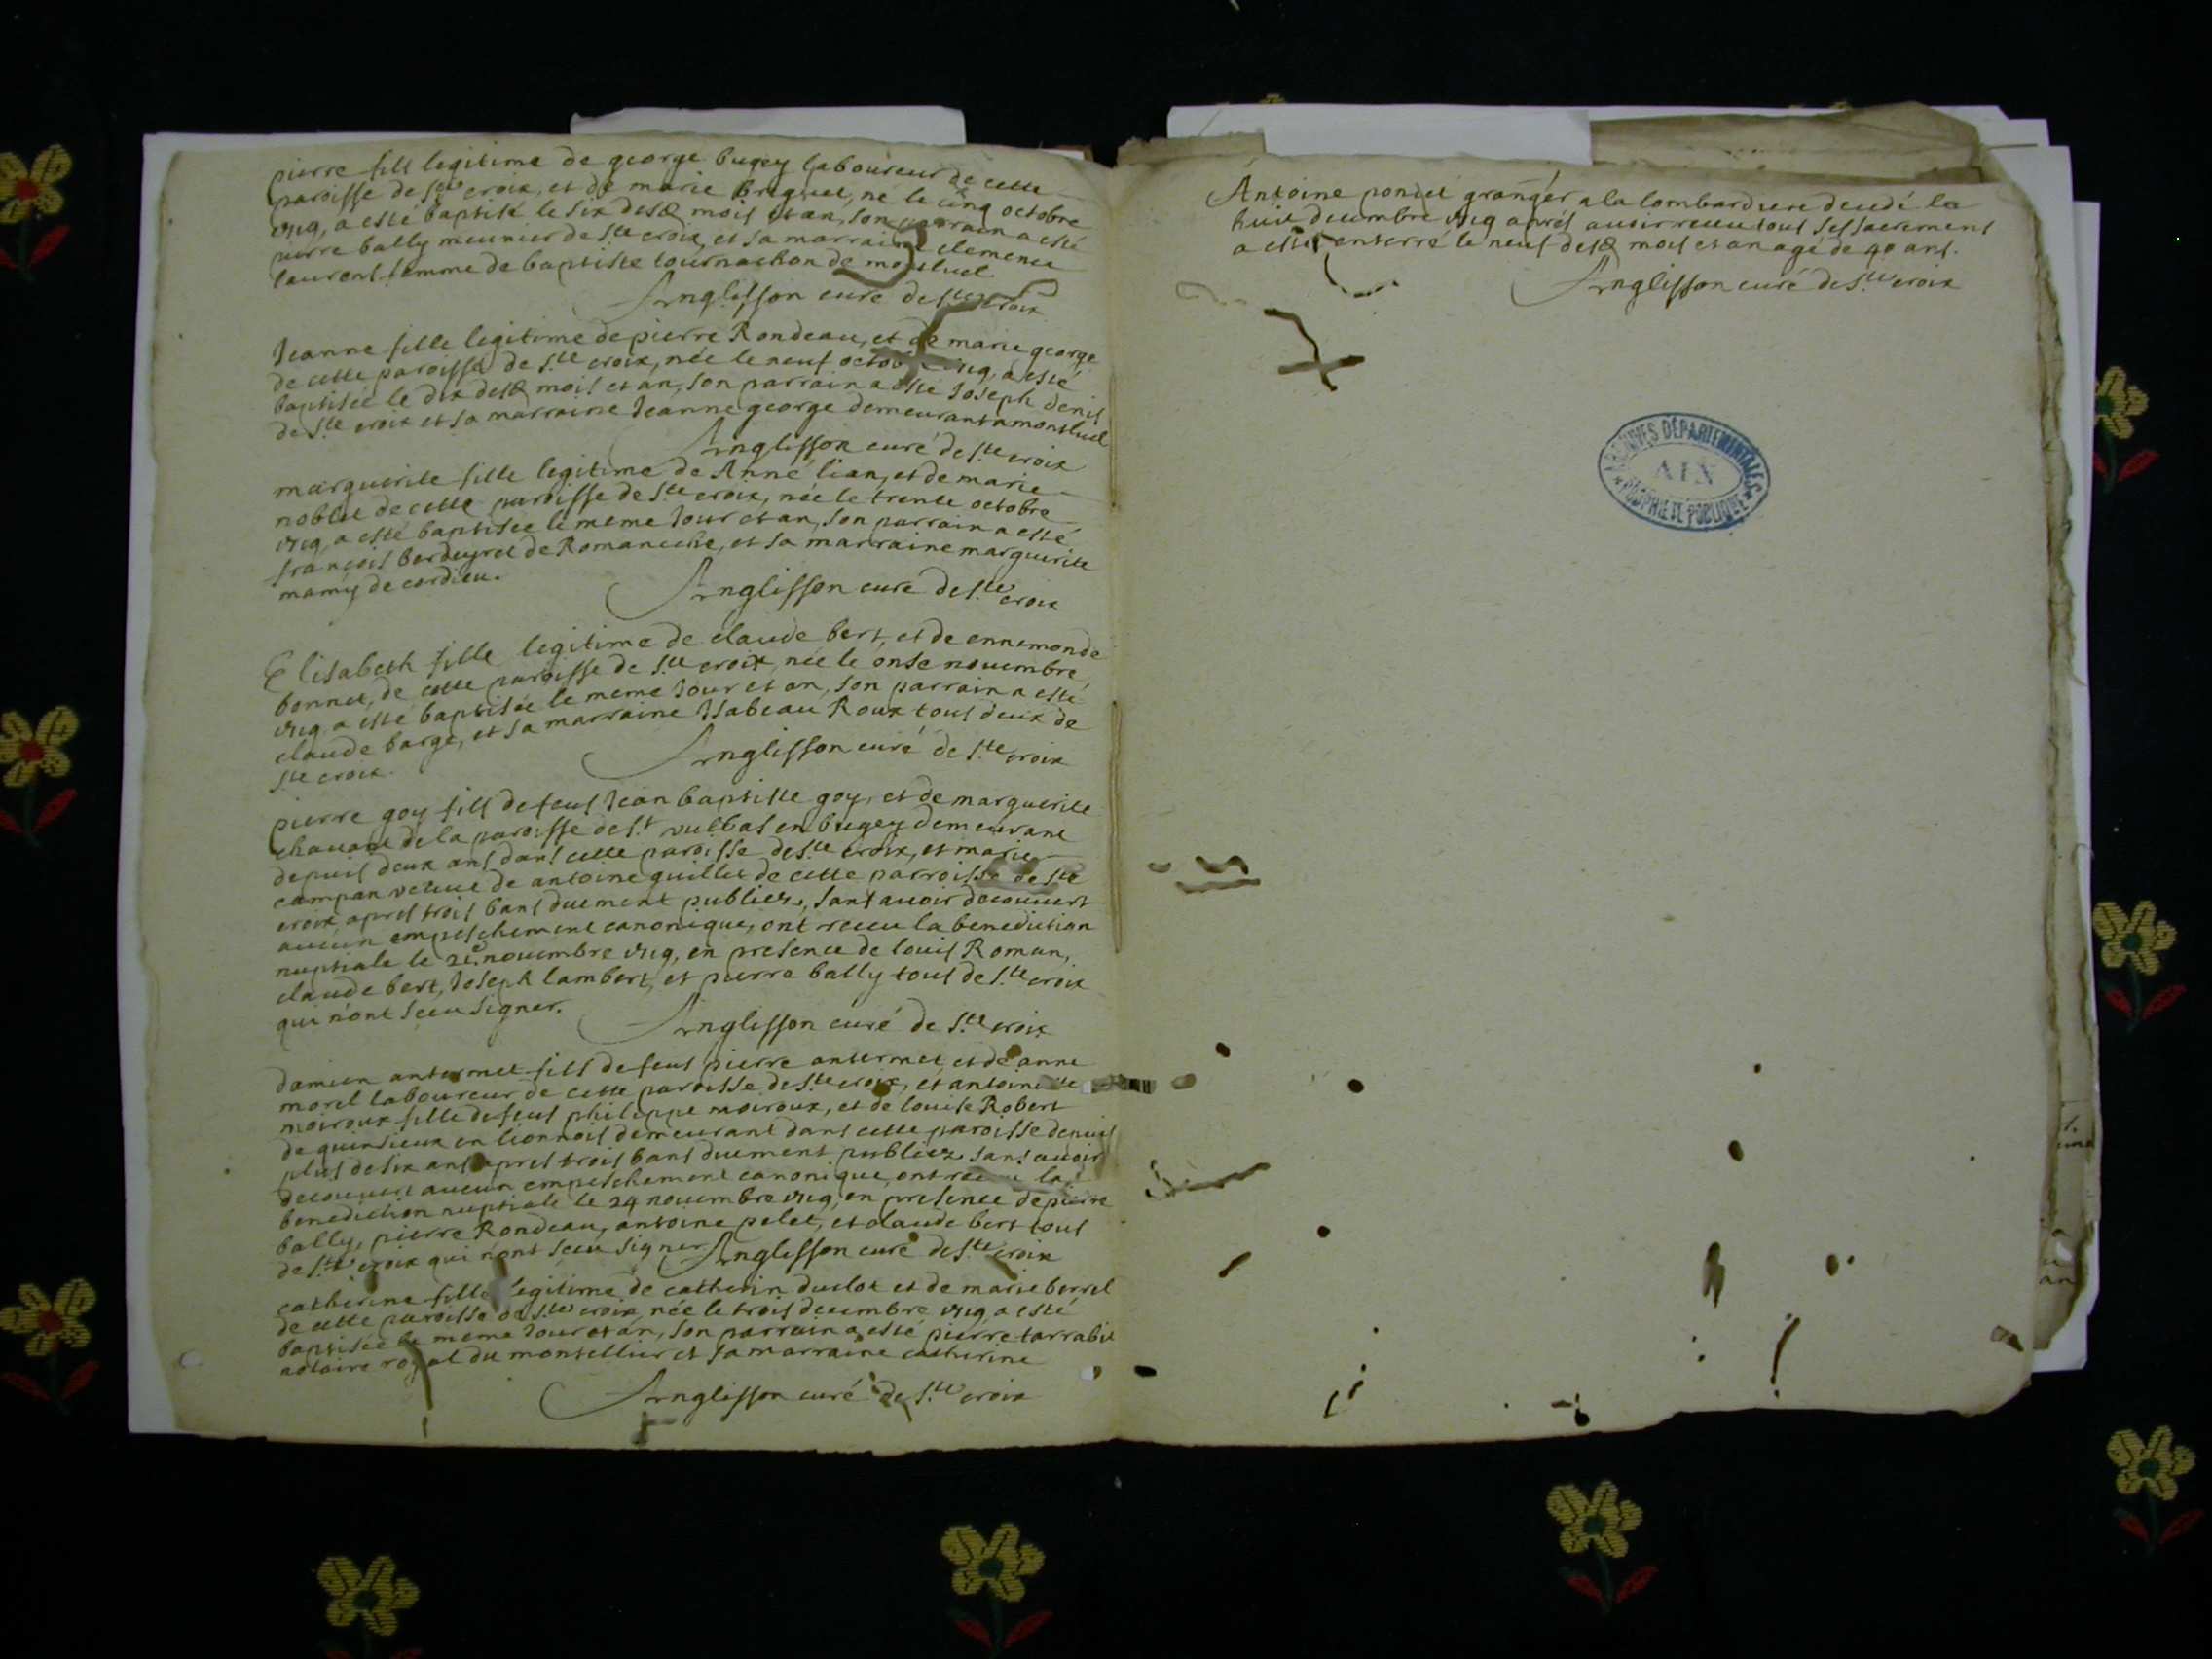 pierre fils legitime de george bugey laboureur de cette
paroisse de Ste croix, et de marie briguet, né le cinq octobre
1719, a esté baptisé le six desd mois et an, son parrain a esté
pierre bally meunier de Ste croix, et sa marraine clemence
laurent femme de baptiste tournachon de monluel
Anglisson curé de Ste croix
Jeanne fille legitime de pierre Rondeau, et de marie george
de cette paroisse de Ste croix, née le neuf octobre 1719, a esté
baptisée le dix desd mois et an, son parrain a esté Joseph denis
de Ste croix et sa marraine Jeanne george demeurant a monsluel
Anglisson curé de Ste croix
marguerite fille legitime de Anné lian, et de marie
noblet de cette paroisse de Ste croix, née le trente octobre
1719, a esté baptisée le meme Jour et an, son parrain a esté
françois berdeyret de Romaneche, et sa marraine marguerite
mamy de cordieu.
Anglisson curé de Ste croix
Elisabeth fille legitime de claude bert, et de ennemonde
bonnet, de cette paroisse de Ste croix, née le onse novembre
1719, a esté baptisée le meme Jour et an, son parrain a esté
claude barge, et sa marraine Isabeau Roux tous deux de
Ste croix.
Anglisson curé de Ste croix
pierre goy fils de feus Jean baptiste goy, et de marguerite
chavant de la paroisse de St vulbas en bugey demeurant
depuis deux ans dans cette paroisse de Ste croix, et marie
campan veuve de antoine guillet de cette parroisse de Ste
croix apres trois bans duement publiez, sans avoir decouvert
aucun empeschement canonique, ont receu la benediction
nuptiale le 21e novembre 1719, en presence de louis Roman,
claude bert, Joseph lambert, et pierre bally tous de Ste croix
qui n'ont sceu signer.
Anglisson curé de Ste croix
damien antermet fils de feus pierre antermet, et de anne
morel laboureur de cette paroisse de Ste croix, et antoinette
moiroux fille de feus philippe moiroux, et de louise Robert
de quinsieux en lionnois demeurant dans cette paroisse depuis
plus de six ans apres trois bans duement publiez sans avoir
decouvert aucun empeschement canonique, ont receu la
benediction nuptiale le 24 novembre 1719, en presence de pierre
bally, pierre Rondeau, antoine pelet, et claude bert tous
de Ste croix qui n'ont sceu signer Anglisson curé de Ste croix
catherine fille legitime de catherin duclot et de marie berrel
de cette paroisse de Ste croix, née le trois decembre 1719, a esté
baptisée le meme Jour et an, son parrain a esté pierre tarrabit
notaire royal du montellier et sa marraine catherine
Anglisson curé de Ste croix
Antoine pondet granger a la lombardiere decedé le
huit decembre 1719 aprés avoir receu tous ses sacrements
a esté enterré le neuf desd mois et an agé de 40 ans.
Anglisson curé de Ste croix
ARCHIVES DÉPARTEMENTALES
AIN
PROPRIÉTÉ PUBLIQUE